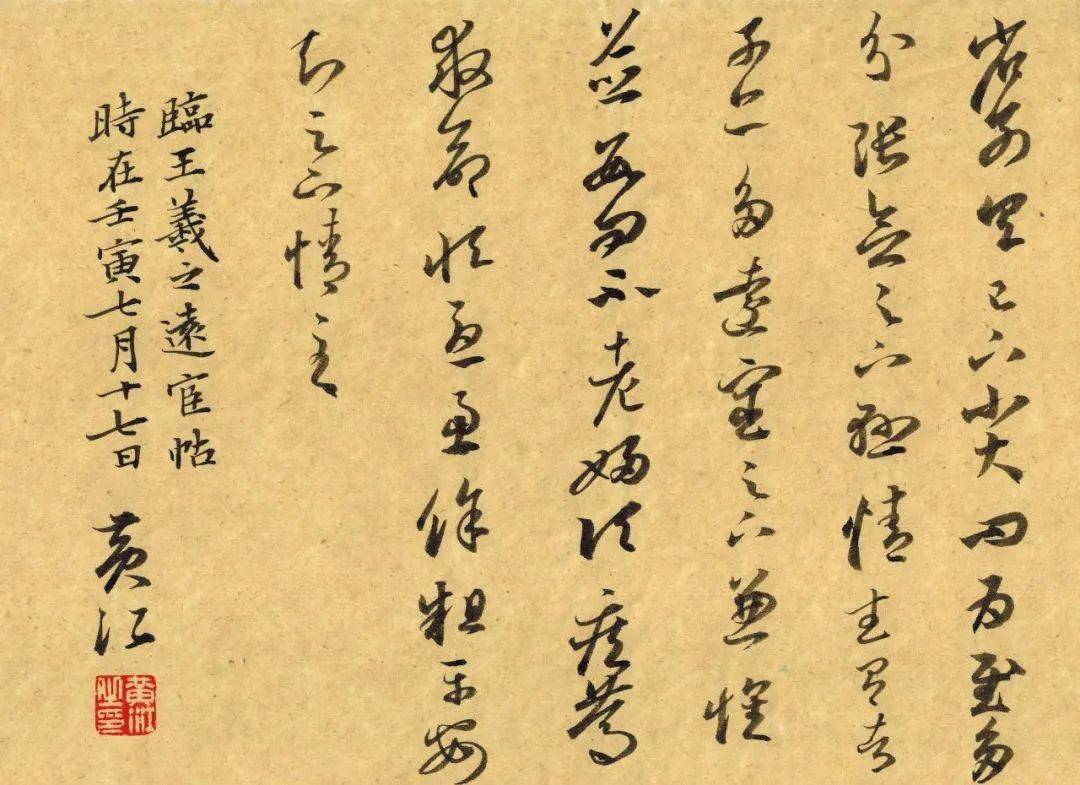 省別具足下小大問為慰多
分張念足下懸情武昌諸
子亦多遠宦足下兼懷
並數問不老婦頃疾篤
救命恒憂慮餘粗平安
知足下情至
臨王羲之遠宦帖
時在壬寅七月十七日 黃江
黃江之印